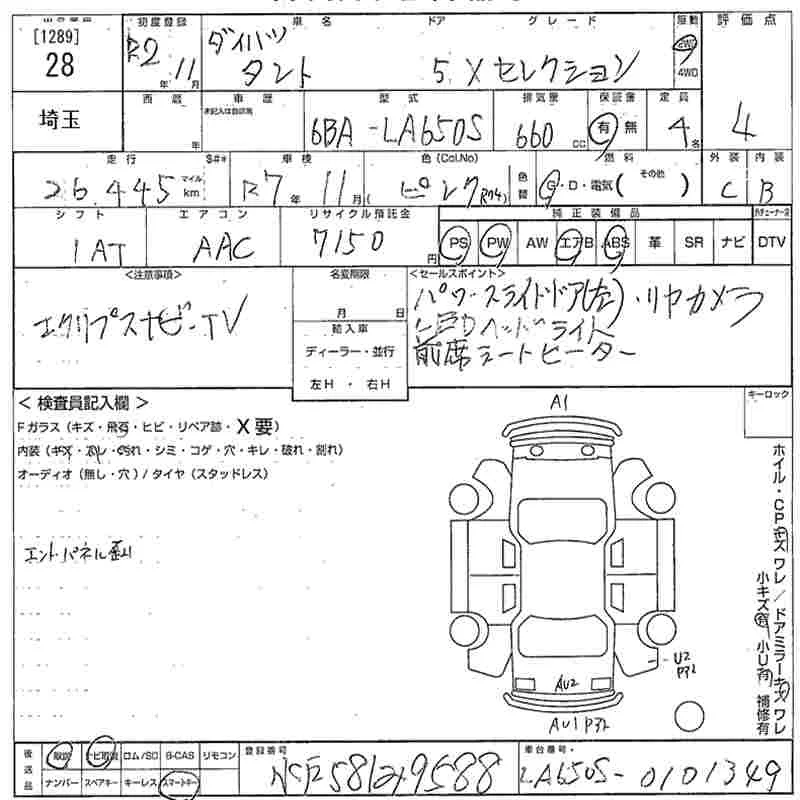 [1289]
28
埼玉
初度登録
R2 年 11 月
車名
ダイハツ
タント
ドア
5
グレード
X セレクション
駆動
2WD
4WD
評価点
4
西暦
年
車歴
未記入は自家用
型式
6BA - LA650S
排気量
660 cc
保証書
有 無
定員
4 名
走行
26,445 マイル km
S#*
車検
R7 年 11 月
色(Col.No)
ピンク(R74)
色替
燃料
G・D・電気( その他 )
外装
C
内装
B
シフト
1AT
エアコン
AAC
リサイクル預託金
7150 円
純正装備品
PS PW AW エアB ABS 革 SR ナビ DTV
<注意事項>
エクリプスナビ-TV
名変期限
月 日
輸入車
ディーラー・並行
左H ・ 右H
<セールスポイント>
パワースライドドア(左)・リヤカメラ
LEDヘッドライト
前席シートヒーター
< 検査員記入欄 >
Fガラス(キズ・飛石・ヒビ・リペア跡・X要)
内装(キズ・スレ・汚れ・シミ・コゲ・穴・キレ・破れ・割れ)
オーディオ(無し・穴)/タイヤ(スタッドレス)
エンドパネル歪み
キーロック
A1
U2
P2
AU2
AU1 P2
ホイル・CPキズ ワレ/ドアミラーキズ ワレ
小キズ有 小U有 補修有
後送品
取説 ナビ取説 ロム/SD B-CAS リモコン
ナンバー スペアキー キーレス スマートキー
登録番号
車台番号
LA650S-0101349